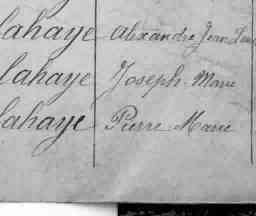 lahaye Alexandre Jean
lahaye Joseph Marie
lahaye Pierre Marie